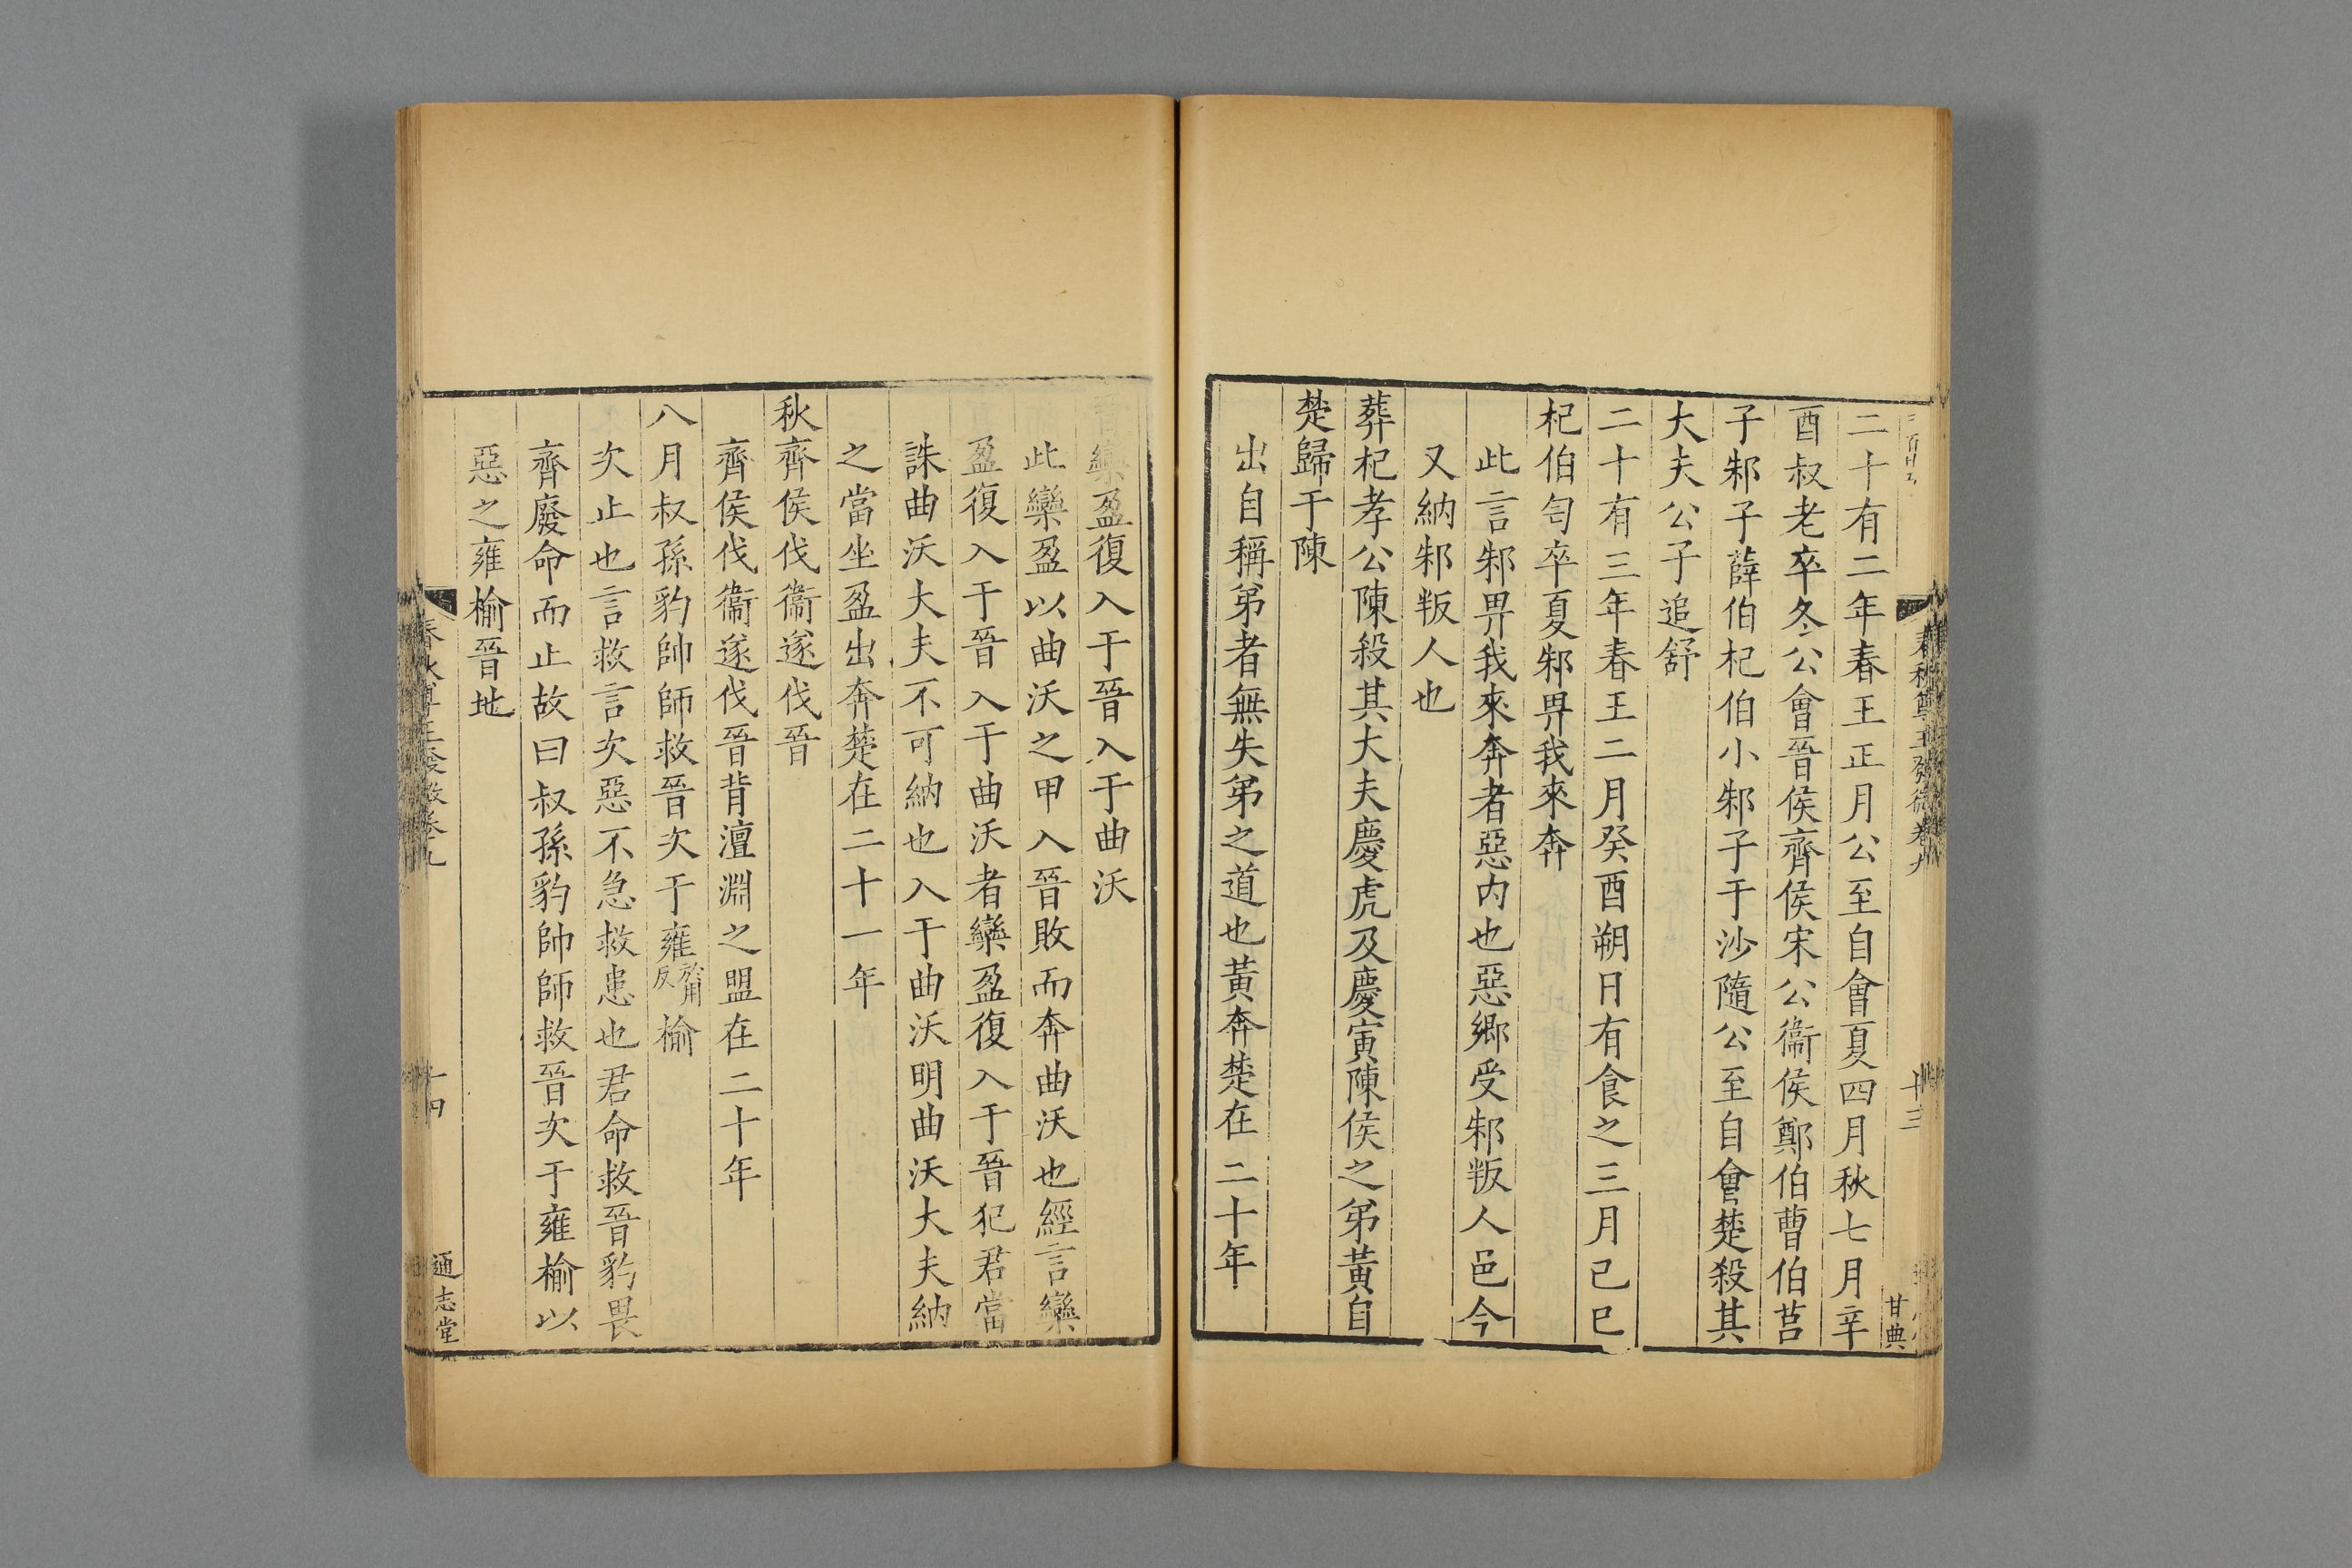 二十有二年春王正月公至自會夏四月秋七月辛
酉叔老卒冬公會晉侯齊侯宋公衞侯鄭伯曹伯莒
子邾子薛伯杞伯小邾子于沙隨公至自會楚殺其
大夫公子追舒
二十有三年春王二月癸酉朔日有食之三月己巳
杞伯匄卒夏邾畀我來奔
此言邾畀我來奔者惡內也惡鄉受邾叛人邑今
又納邾叛人也
葬杞孝公陳殺其大夫慶虎及慶寅陳侯之弟黃自
楚歸于陳
出自稱弟者無失弟之道也黃奔楚在二十年
甘典
十三
晉欒盈復入于晉入于曲沃
此欒盈以曲沃之甲入晉敗而奔曲沃也經言欒
盈復入于晉入于曲沃者欒盈復入于晉犯君當
誅曲沃大夫不可納也入于曲沃明曲沃大夫納
之當坐盈出奔楚在二十一年
秋齊侯伐衞遂伐晉
齊侯伐衞遂伐晉背澶淵之盟在二十年
八月叔孫豹帥師救晉次于雍於用反榆
次止也言救言次惡不急救患也君命救晉豹畏
齊廢命而止故曰叔孫豹帥師救晉次于雍榆以
惡之雍榆晉地
十四
通志堂